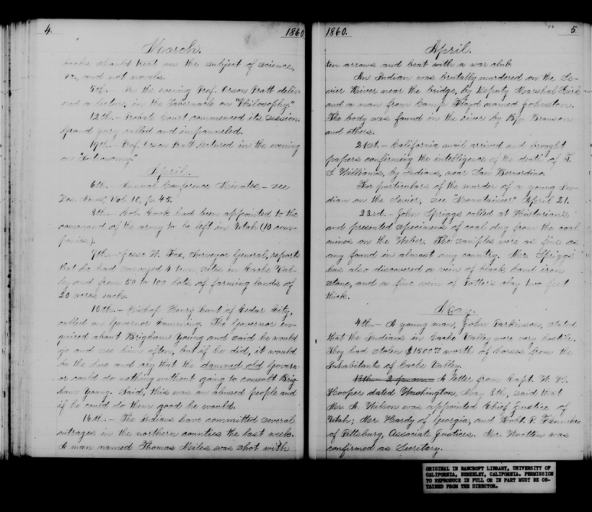 4. 1860
March.
books should treat on the subject of science,
&c, and not novels.
5th.- In the evening Prof. Orson Pratt deliv-
ed a lecture, in the Tabernacle on "Philosophy."
12th.- Probate Court commenced its session
grand jury called and impanneled.
19th.- Prof. Orson Pratt lectured in the evening
on "Astronomy."
April.
6th. Annual Conference Minutes - see
Des. News, Vol. 10, p. 45.
8th.- had been appointed to the
command of the army to be left in Utah (10 com-
panies).
9th.- Jesse W. Fox, Surveyor General, reports
that he had surveyed sites in Cache Val-
ley and from 50 to 100 lots of farming lands of
20 acres each.
10th.- Bishop Henry Lunt of Cedar City,
called on Governor Cumming. The Governor en-
quired about Brigham Young and said he would
go and see him often, but if he did, it would
be and say that the damned old Govern-
or could do nothing without going to consult Brig-
ham Young. Said, this was an abused people and
if he could do them good he would.
16th.- The Indians have committed several
outrages in the northern counties the last week.
A man named Thomas Miles was shot with
1860. 5
April.
ten arrows and beat with a war club.
An Indian was brutally murdered on the Se-
vier River near the bridge, by Deputy Marshal
and a man from Camp Floyd named Johnston.
The body was found in the river by Bp. Brunson
and others.
21st.- California mail arrived and brought
papers confirming the intelligence of the death of T.
S. Williams, by Indians, near San Bernardino.
For particulars of the murder of a young In-
dian on the Sevier, see "Mountaineer" April 21.
22nd.- John Spriggs called at Historian's
and presented specimens of coal dug from the coal
mines on the Weber. The samples were as fine as
any found in almost any country. Mr. Spriggs
has also discovered a vein of black band iron
stone, and a fine vein of Potter's clay two feet
thick.
May.
4th.- A young man, John Parkinson, stated
that the Indians in Cache Valley were very hostile.
They had stolen $1500 worth of horses from the
inhabitants of Cache Valley.
A letter from Capt. W. H.
Hooper dated Washington, May 8th, said that
Mr. A. Wilson was appointed Chief Justice of
Utah; Mr. Hardy of Georgia, and
of Pittsburg, Associate Justices. Mr. Wootton was
confirmed as Secretary.
ORIGINAL IN BANCROFT LIBRARY, UNIVERSITY OF
CALIFORNIA, BERKELEY, CALIFORNIA. PERMISSION
TO REPRODUCE IN FULL OR IN PART MUST BE OB-
TAINED FROM THE DIRECTOR.